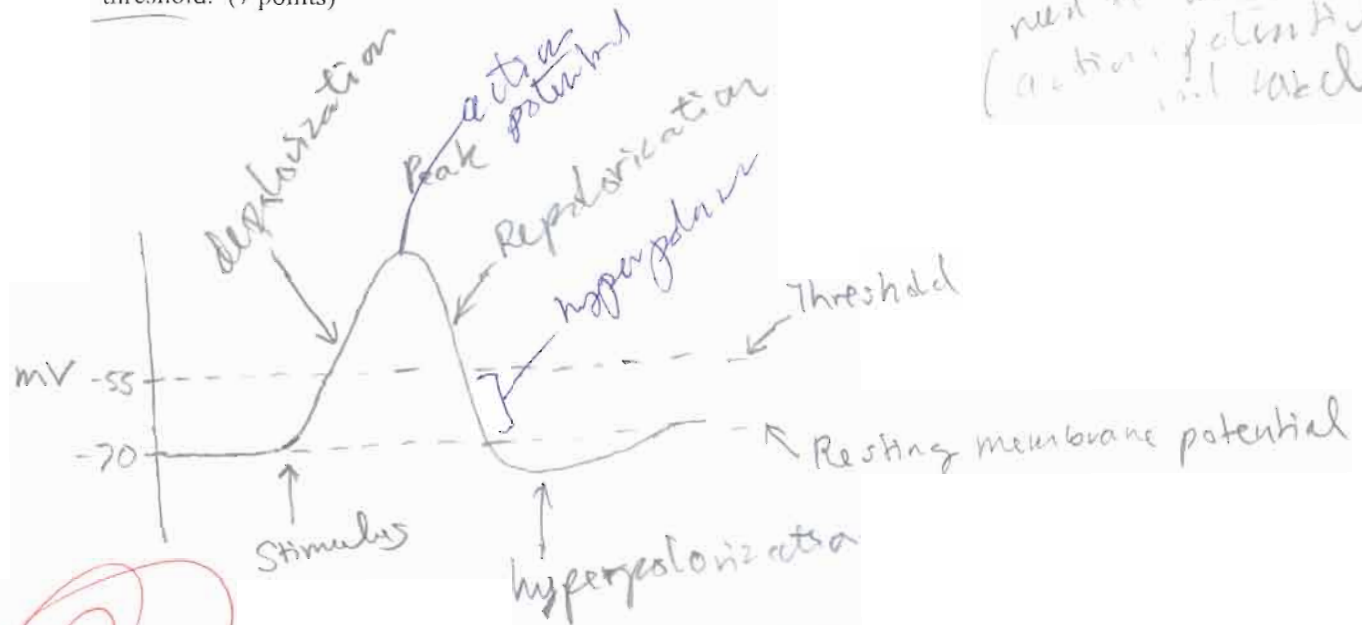 threshold. (7 points)
need
action potential
label
depolorization
action
potential
Peak
Repolorization
hyperpolar
Threshold
mV -55
-70
Resting membrane potential
Stimulus
hyperpolorization